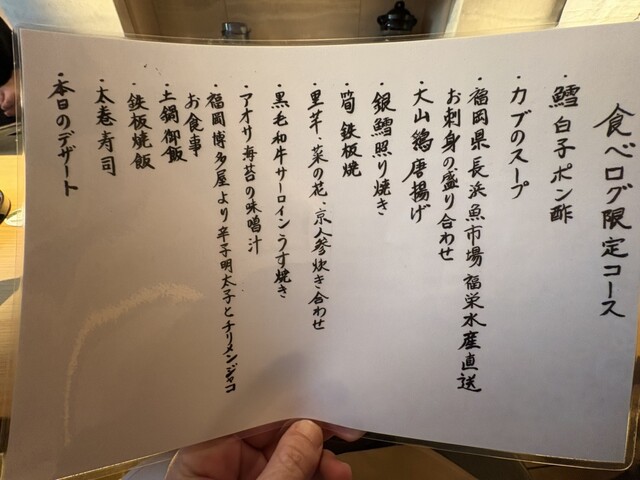 食べログ限定コース
・鱈白子ポン酢
・カブのスープ
・福岡県長浜魚市場 福栄水産直送
お刺身の盛り合わせ
・大山鶏唐揚げ
・銀鱈照り焼き
・筍鉄板焼
・里芋・菜の花・京人参炊き合わせ
・黒毛和牛サーロインうす焼き
・アオサ海苔の味噌汁
・福岡博多屋より辛子明太子とチリメンジャコ
お食事
・土鍋御飯
・鉄板焼飯
・太巻寿司
・本日のデザート